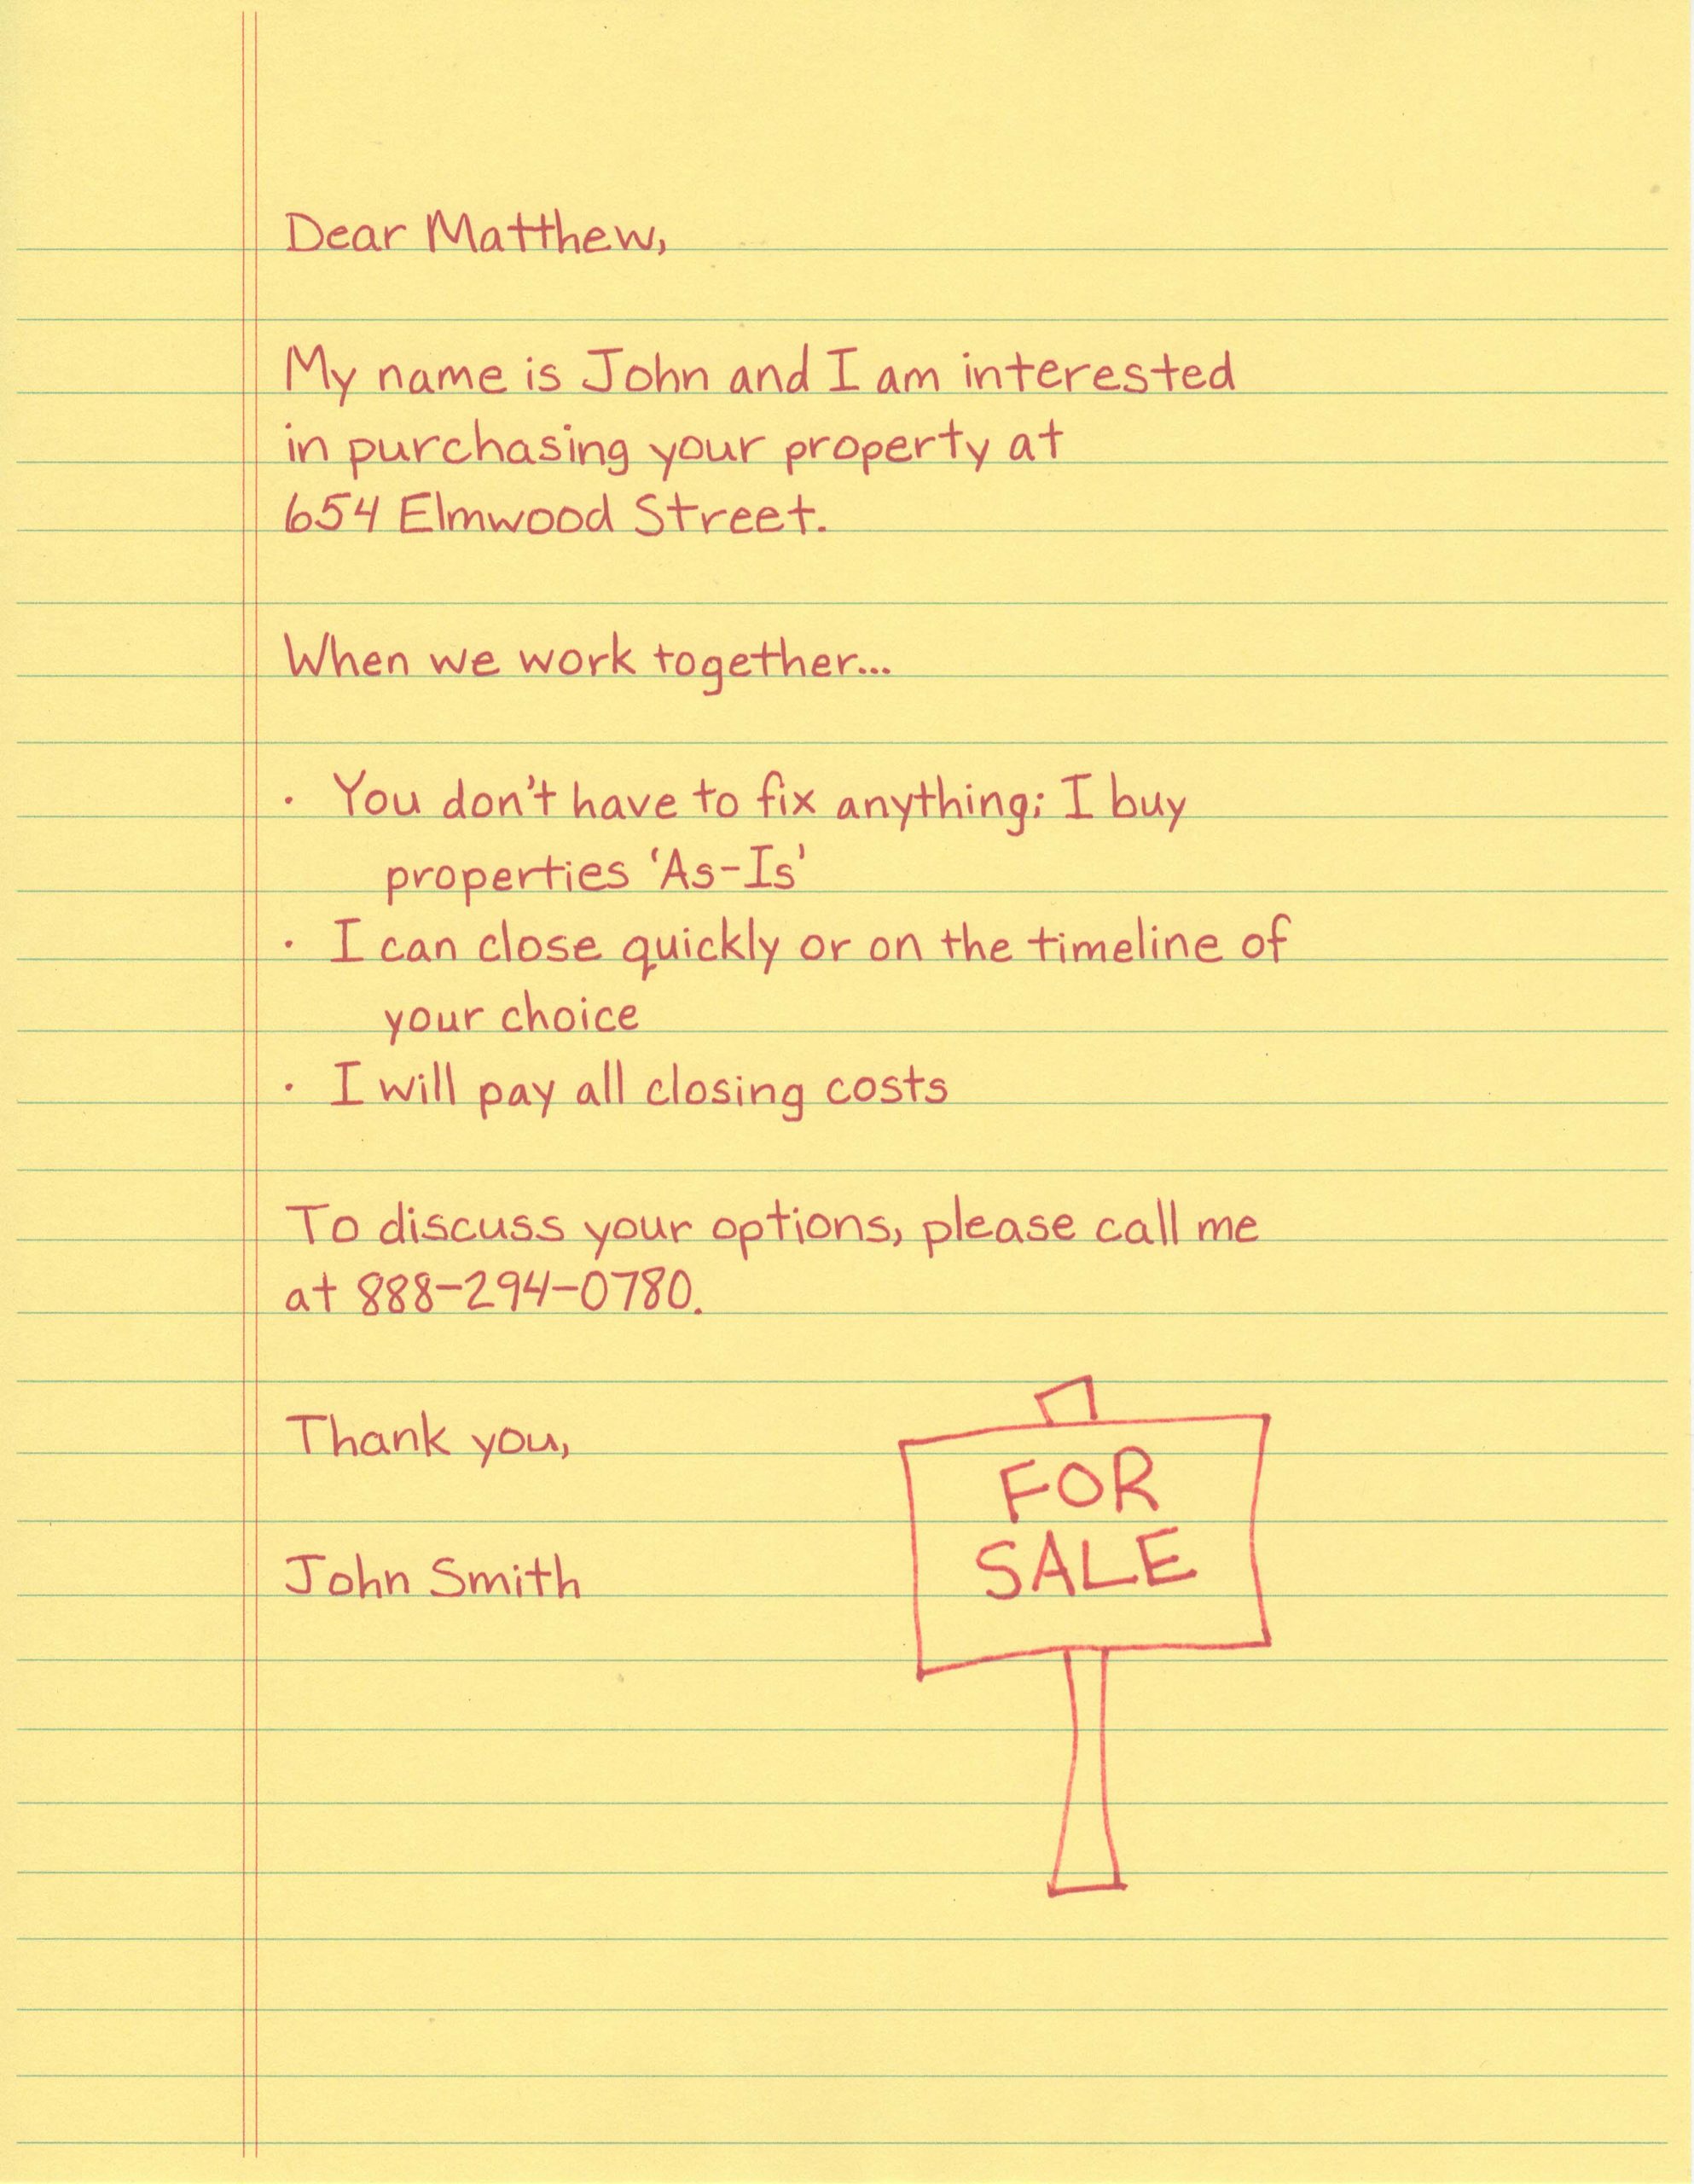 Dear Matthew,
My name is John and I am interested
in purchasing your property at
654 Elmwood Street.
When we work together...
· You don't have to fix anything; I buy
properties 'As-Is'
· I can close quickly or on the timeline of
your choice
· I will pay all closing costs
To discuss your options, please call me
at 888-294-0780.
Thank you,
John Smith
FOR
SALE